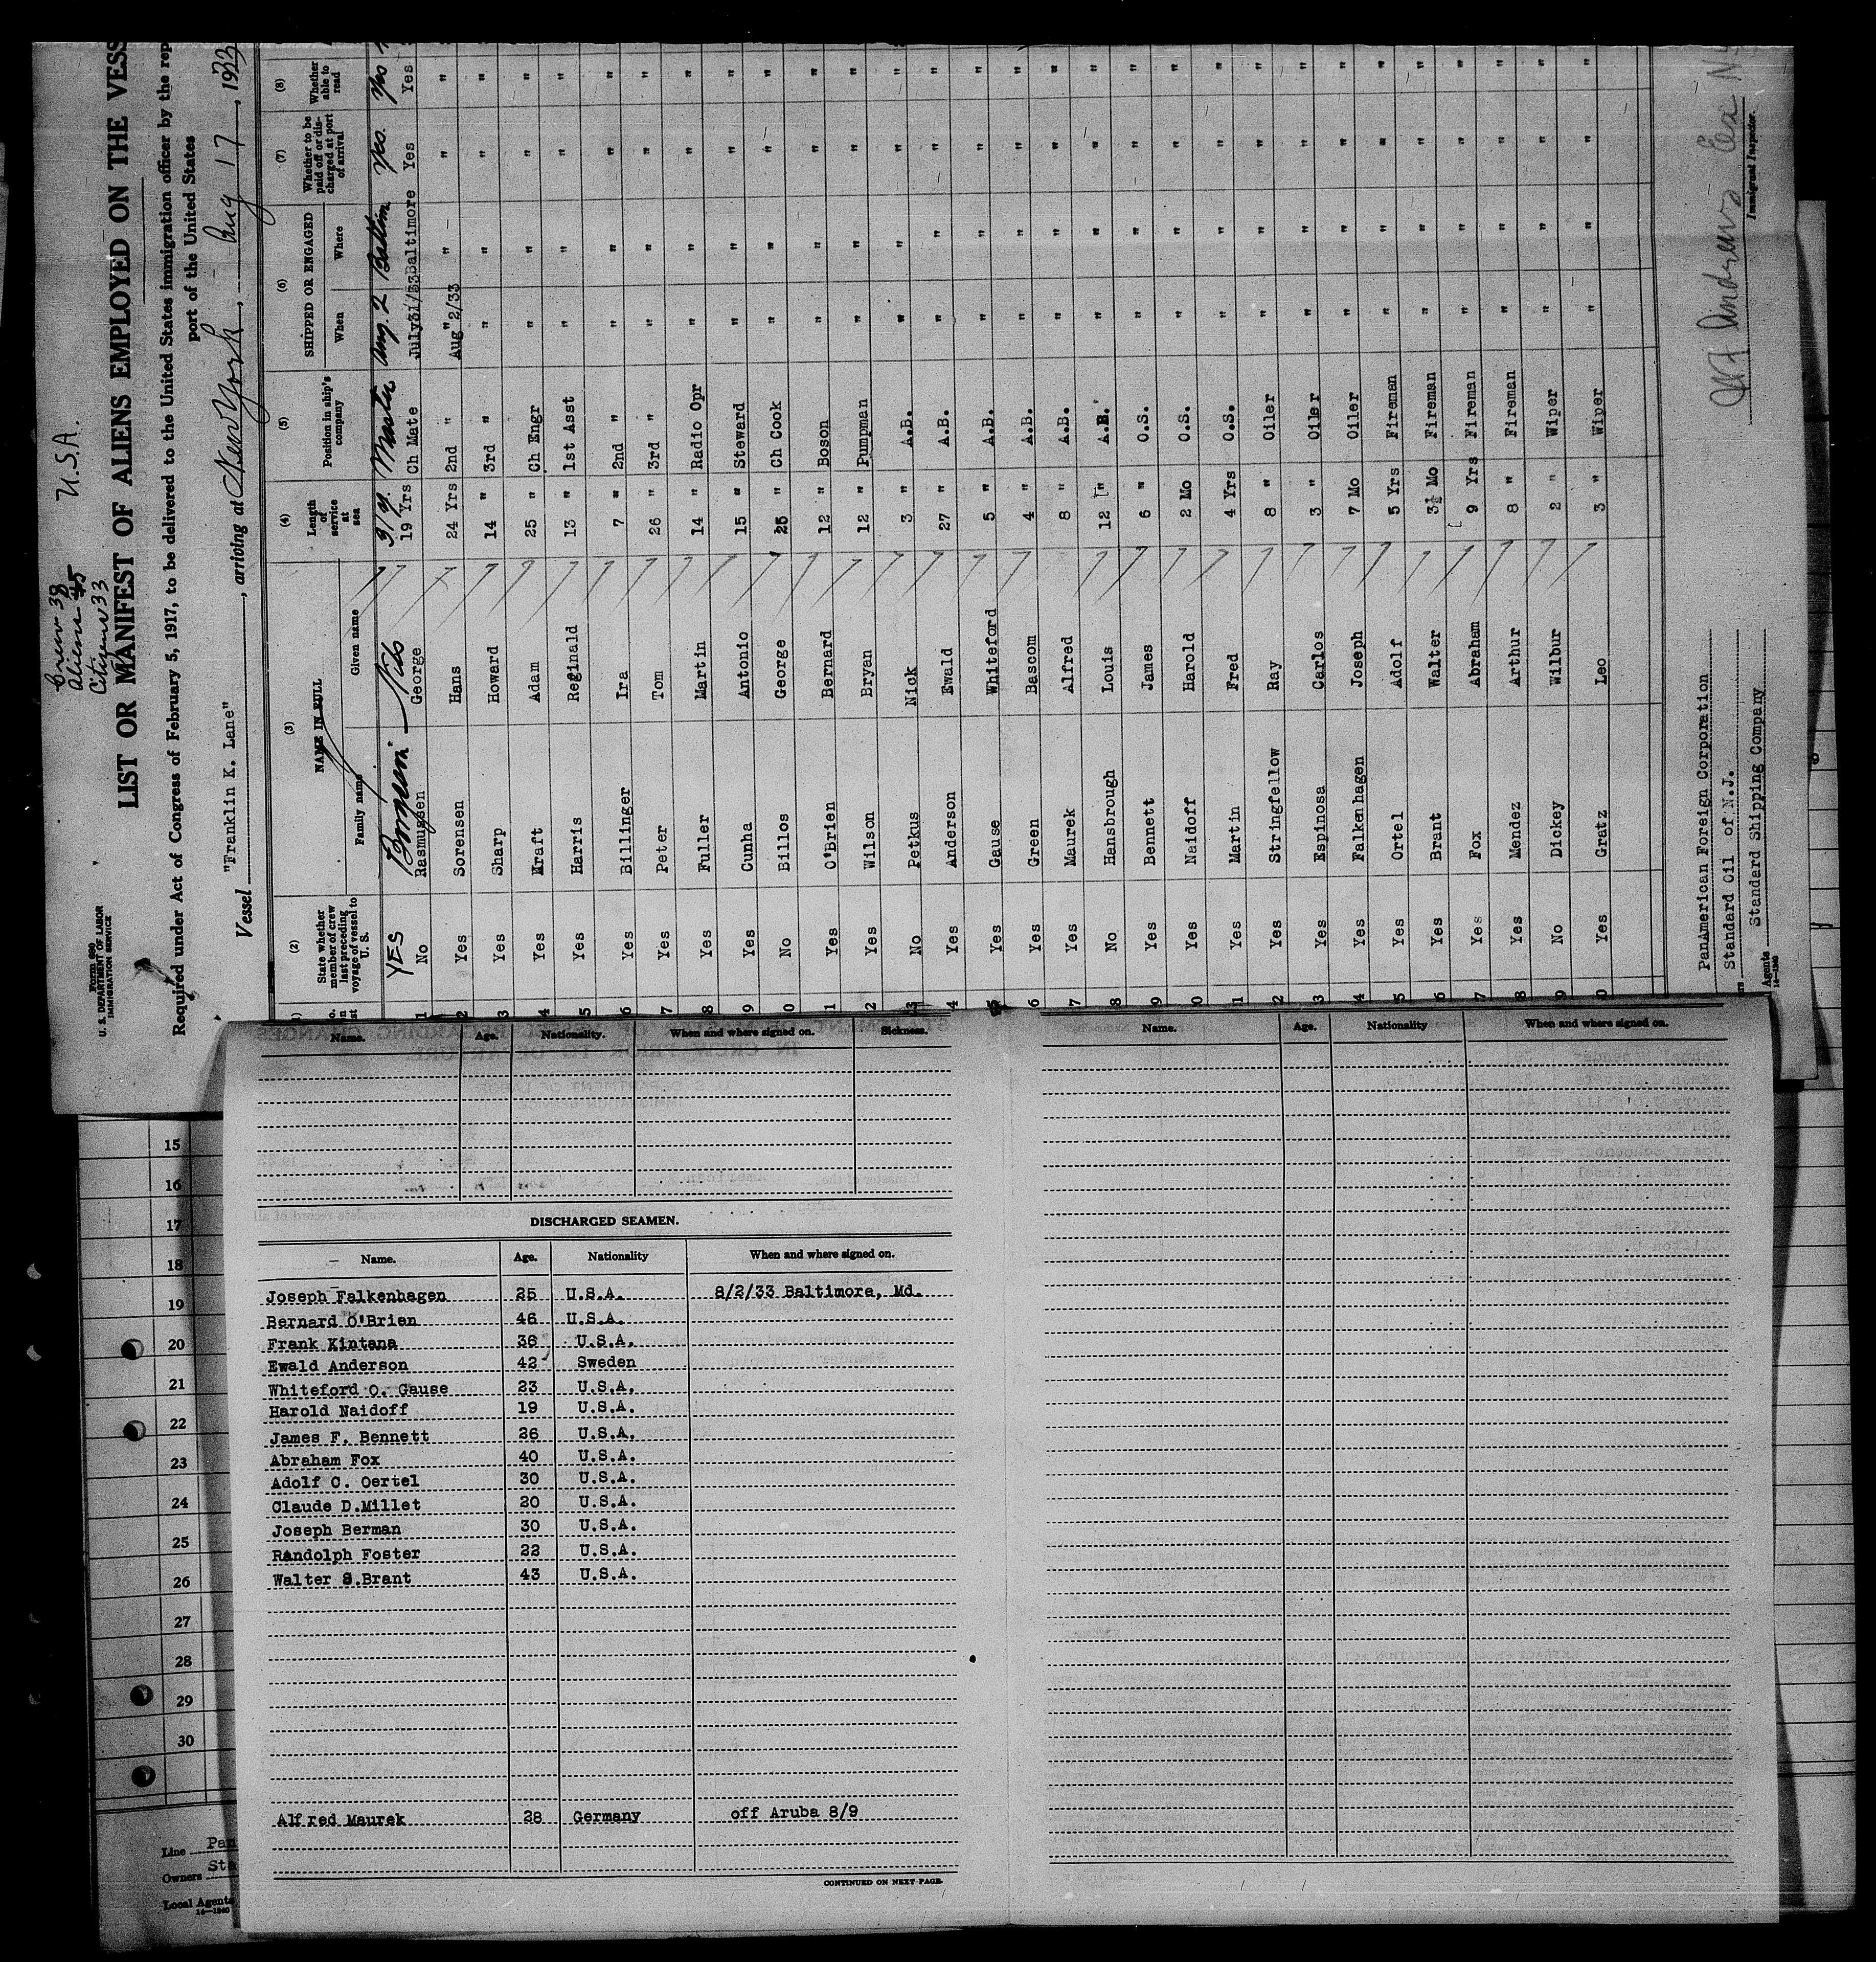 Crew 38
Aliens 5
Citizens 33
U.S.A.
Form 680
U. S. DEPARTMENT OF LABOR
IMMIGRATION SERVICE
LIST OR MANIFEST OF ALIENS EMPLOYED ON THE VESS
Required under Act of Congress of February 5, 1917, to be delivered to the United States immigration officer by the rep
port of the United States
Vessel "Franklin K. Lane", arriving at New York, Aug 17, 1933
(2) (3) (4) (5) (6) (7) (8)
State whether member of crew last preceding voyage of vessel to U. S. NAME IN FULL Family name Given name Length of service at sea Position in ship's company SHIPPED OR ENGAGED When Where Whether to be paid off or discharged at port of arrival Whether able to read
YES Nils 31 y. Master Aug. 2 Baltim Yes. Yes
1 No Rasmussen George 19 Yrs Ch Mate July31/33 Baltimore Yes Yes
2 Yes Sorensen Hans 24 Yrs 2nd " Aug 2/33 " " "
3 Yes Sharp Howard 14 " 3rd " " " " "
4 Yes Kraft Adam 25 " Ch Engr " " " "
5 Yes Harris Reginald 13 " 1st Asst " " " "
6 Yes Billinger Ira 7 " 2nd " " " " "
7 Yes Peter Tom 26 " 3rd " " " " "
8 Yes Fuller Martin 14 " Radio Opr " " " "
9 Yes Cunha Antonio 15 " Steward " " " "
0 No Billos George 25 " Ch Cook " " " "
1 Yes O'Brien Bernard 12 " Boson " " " "
2 Yes Wilson Bryan 12 " Pumpman " " " "
13 No Petkus Nick 3 " A.B. " " " "
4 Yes Anderson Ewald 27 " A.B. " " " "
5 Yes Gause Whiteford 5 " A.B. " " " "
6 Yes Green Bascom 4 " A.B. " " " "
7 Yes Maurek Alfred 8 " A.B. " " " "
8 No Hansbrough Louis 12 " A.B. " " " "
9 Yes Bennett James 6 " O.S. " " " "
0 Yes Naidoff Harold 2 Mo O.S. " " " "
1 Yes Martin Fred 4 Yrs O.S. " " " "
2 Yes Stringfellow Ray 8 " Oiler " " " "
3 Yes Espinosa Carlos 3 " Oiler " " " "
4 Yes Falkenhagen Joseph 7 Mo Oiler " " " "
5 Yes Ortel Adolf 5 Yrs Fireman " " " "
6 Yes Brant Walter 3½ Mo Fireman " " " "
7 Yes Fox Abraham 9 Yrs Fireman " " " "
8 Yes Mendez Arthur 8 " Fireman " " " "
9 No Dickey Wilbur 2 " Wiper " " " "
0 Yes Gratz Leo 3 " Wiper " " " "
PanAmerican Foreign Corporation
Standard Oil of N.J.
Agents Standard Shipping Company
14-1940
Immigrant Inspector.
Name. Age. Nationality. When and where signed on. Sickness.
DISCHARGED SEAMEN.
Name. Age. Nationality When and where signed on.
Joseph Falkenhagen 25 U.S.A. 8/2/33 Baltimore, Md.
Bernard O'Brien 46 U.S.A.
Frank Kintana 36 U.S.A.
Ewald Anderson 42 Sweden
Whiteford O. Gause 23 U.S.A.
Harold Naidoff 19 U.S.A.
James F. Bennett 26 U.S.A.
Abraham Fox 40 U.S.A.
Adolf C. Oertel 30 U.S.A.
Claude D.Millet 20 U.S.A.
Joseph Berman 30 U.S.A.
Randolph Foster 22 U.S.A.
Walter S.Brant 43 U.S.A.
Alfred Maurek 28 Germany off Aruba 8/9
CONTINUED ON NEXT PAGE.
Name. Age. Nationality When and where signed on.
15
16
17
18
19
20
21
22
23
24
25
26
27
28
29
30
Line Pan
Owners Sta
Local Agents
14-1940